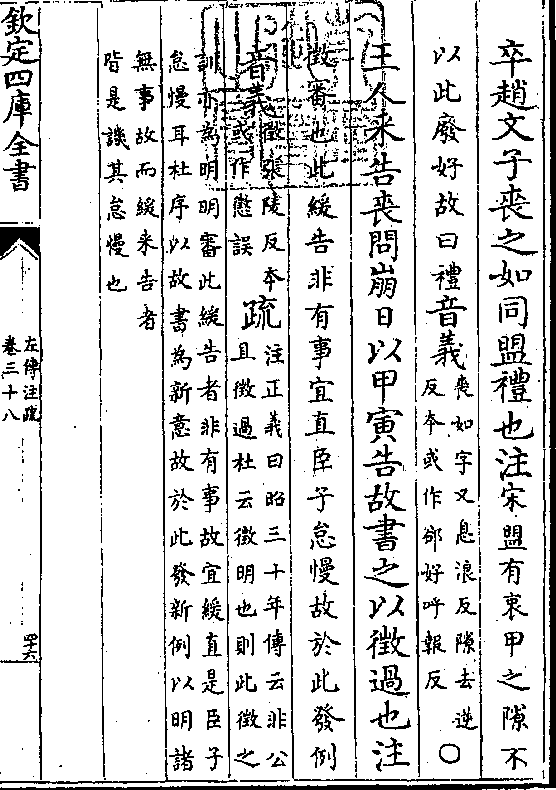 卒趙文子喪之如同盟禮也注宋盟有衷甲之隙不
以此廢好故曰禮音義喪如字又息浪反隙去逆
反本或作郤好呼報反○
王人来告喪問崩日以甲寅告故書之以徵過也注
徵審也此緩告非有事宜直臣子怠慢故於此發例
音義徵張陵反本
或作懲誤
疏注正義曰昭三十年傳云非公
且徵過杜云徵明也則此徵之
訓亦為明明審此緩告者非有事故宜緩直是臣子
怠慢耳杜序以故書為新意故於此發新例以明諸
無事故而緩来告者
皆是譏其怠慢也
欽定四庫全書
左傳注疏
卷三十八
四六